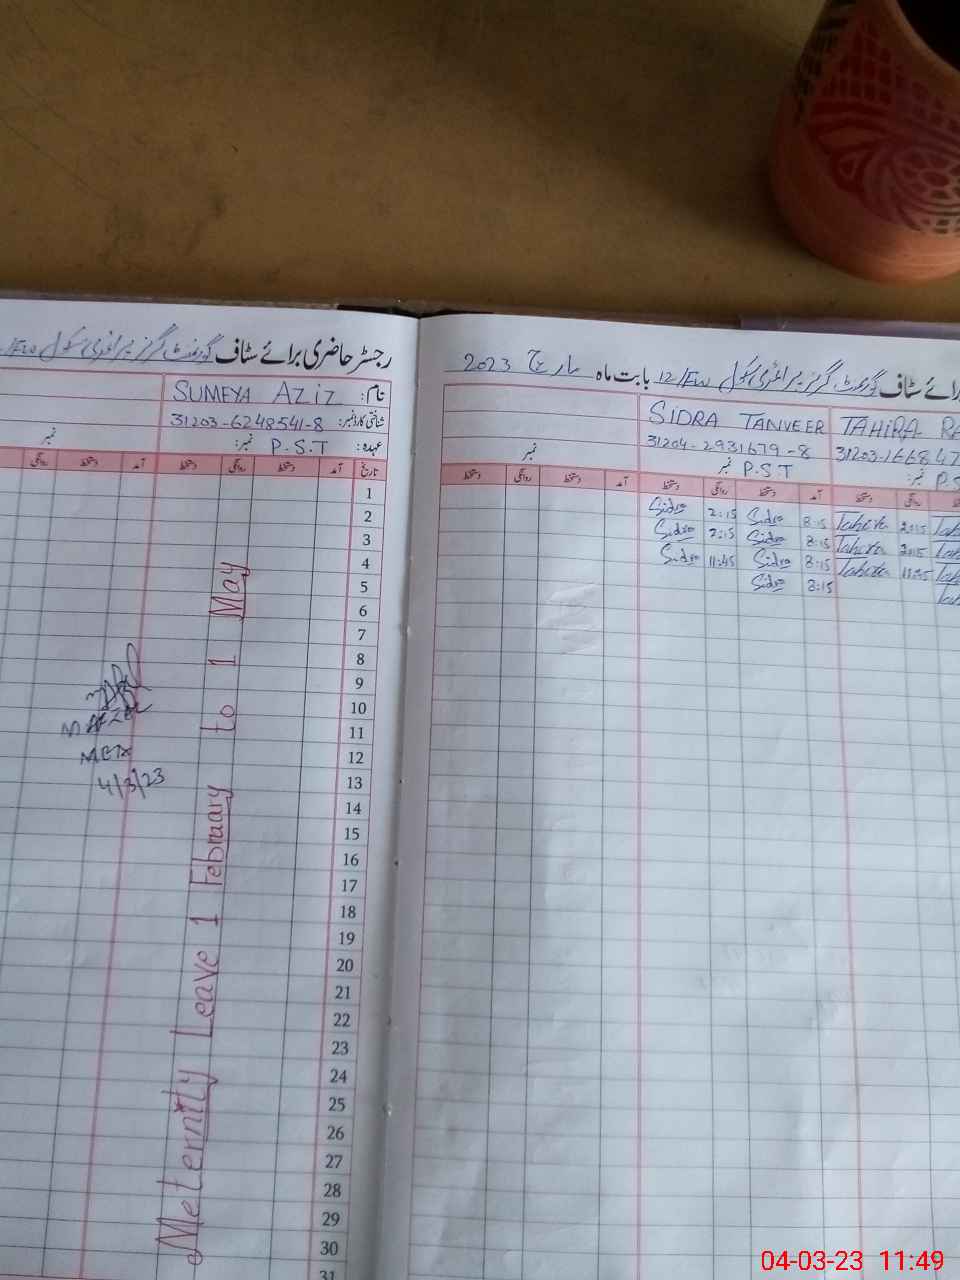 رجسٹر حاضری برائے سٹاف گورنمنٹ گرلز پرائمری سکول
نام: SUMEYA AZIZ
شناختی کارڈ نمبر: 31203-6248541-8
عہدہ: P.S.T نمبر:
نمبر
تاریخ آمد دستخط روانگی دستخط آمد دستخط روانگی
1
2
3
4
5
6
7
8
9
10
11
12
13
14
15
16
17
18
19
20
21
22
23
24
25
26
27
28
29
30
31
Meternity Leave 1 February to 1 May
4/3/23
رائے سٹاف گورنمنٹ گرلز پرائمری سکول 12/FW بابت ماہ مارچ 2023
SIDRA TANVEER TAHIRA RA
31204-2931679-8 31203-166847
نمبر P.S.T نمبر: P.S
نمبر
دستخط روانگی دستخط آمد دستخط روانگی دستخط آمد دستخط روانگی
Sidra 2:15 Sidra 8:15 Tahira 2:15 Tah
Sidra 2:15 Sidra 8:15 Tahira 2:15 Tah
Sidra 11:45 Sidra 8:15 Tahira 11:45 Tah
Sidra 8:15 Tah
04-03-23 11:49